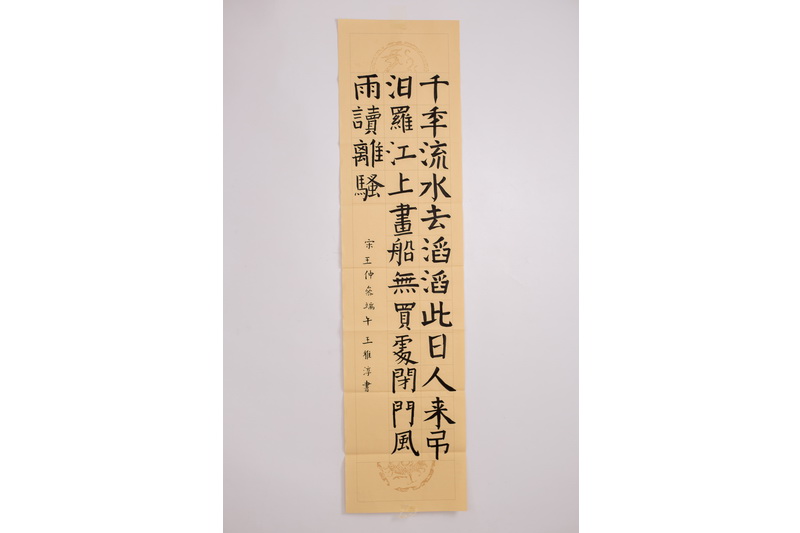 千年流水去滔滔此日人来吊
汨羅江上畫船無買處閉門風
雨讀離騷
宋王仲端午王雅淳書